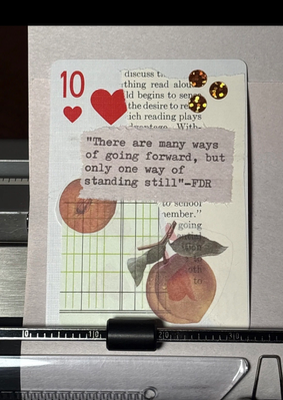 10
discuss t
thing read alou
ld begins to sen
the desire to re
ich reading plays
With-
"There are many ways
of going forward, but
only one way of
standing still"—FDR
to school
member."
going
0